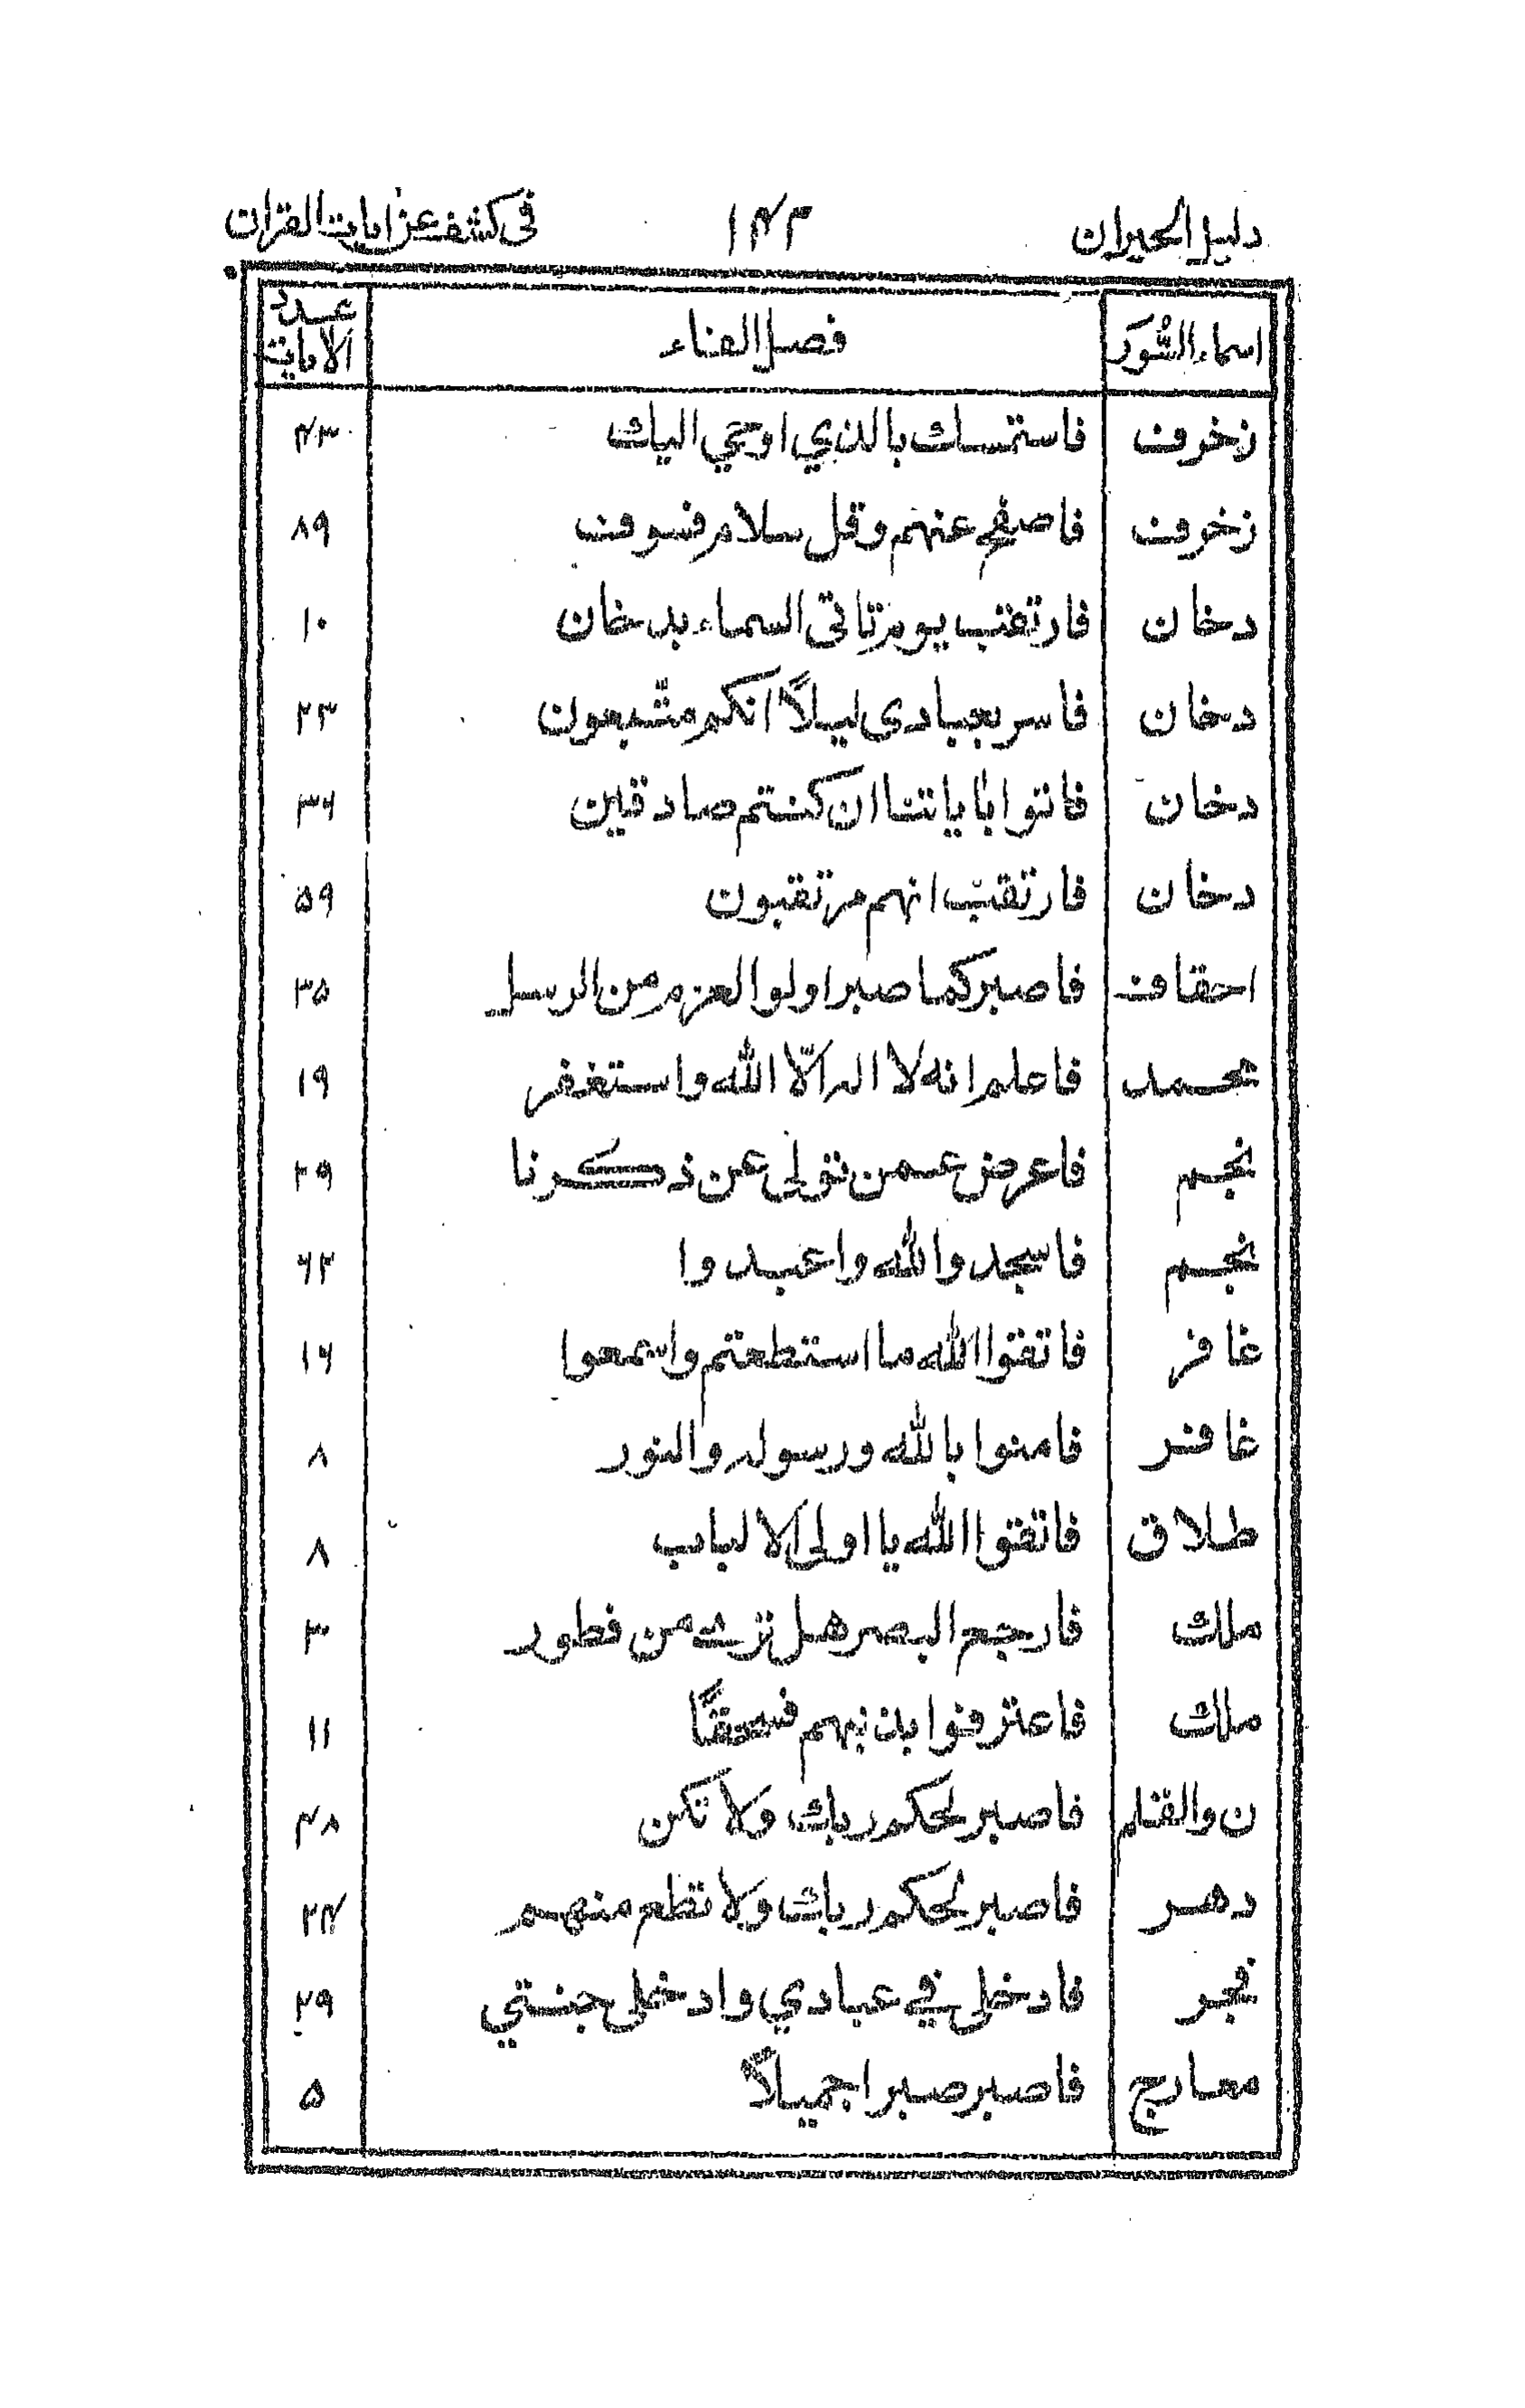 دليل الحيران ١٤٣ في كشف عن ايات القران
اسماء السُّوَر فصل الفاء عدد الايات
زخرف فاستمسك بالذي اوحي اليك ٤٣
زخرف فاصفح عنهم وقل سلام فسوف ٨٩
دخان فارتقب يوم تاتي السماء بدخان ١٠
دخان فاسر بعبادى ليلاً انكم متّبعون ٢٣
دخان فاتوا بابائنا ان كنتم صادقين ٣٦
دخان فارتقب انهم مرتقبون ٥٩
احقاف فاصبر كما صبر اولوا العزم من الرسل ٣٥
محمد فاعلم انه لا اله الّا الله واستغفر ١٩
نجم فاعرض عمن تولى عن ذكرنا ٢٩
نجم فاسجدوا لله واعبدوا ٦٢
غافر فاتقوا الله ما استطعتم واسمعوا ١٦
غافر فامنوا بالله ورسوله والنور ٨
طلاق فاتقوا الله يا اولى الالباب ٨
ملك فارجع البصر هل ترى من فطور ٣
ملك فاعترفوا بذنبهم فسحقًا ١١
ن والقلم فاصبر لحكم ربك ولا تكن ٤٨
دهر فاصبر لحكم ربك ولا تطع منهم ٢٤
فجر فادخلى في عبادي وادخلى جنتي ٢٩
معارج فاصبر صبرا جميلاً ٥